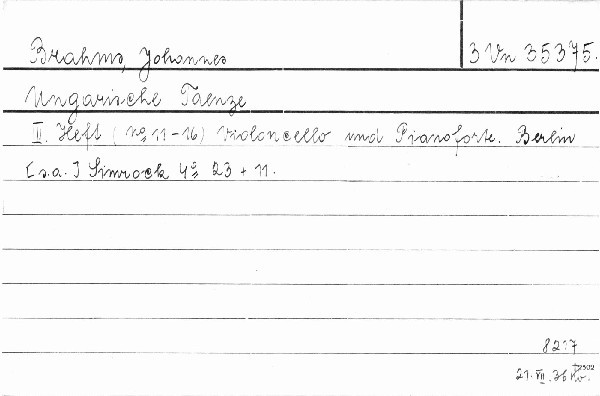 Brahms, Johannes 3 Vn 35375.
Ungarische Taenze
II. Heft (No 11-16) Violoncello und Pianoforte. Berlin
[s.a.] Simrock 4o 23 + 11.
8217
21. VII. 36